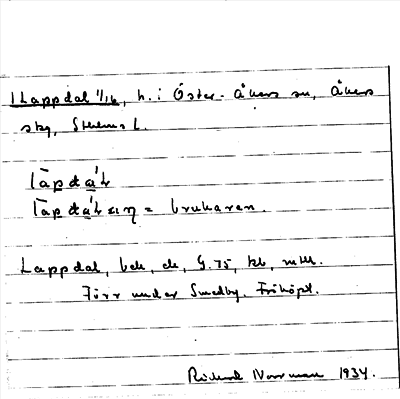 1 Lappdal 1/16, h. i Öster-Åkers sn, Åkers
skg, Sthlms l.
lāpdà'ɫ
lāpdà'ɫɛıŋ = brukaren.
Lappdal, by, G. 75, kb, mtl.
Förr under Smedby. Friköpt.
Rickard Norrman 1934.